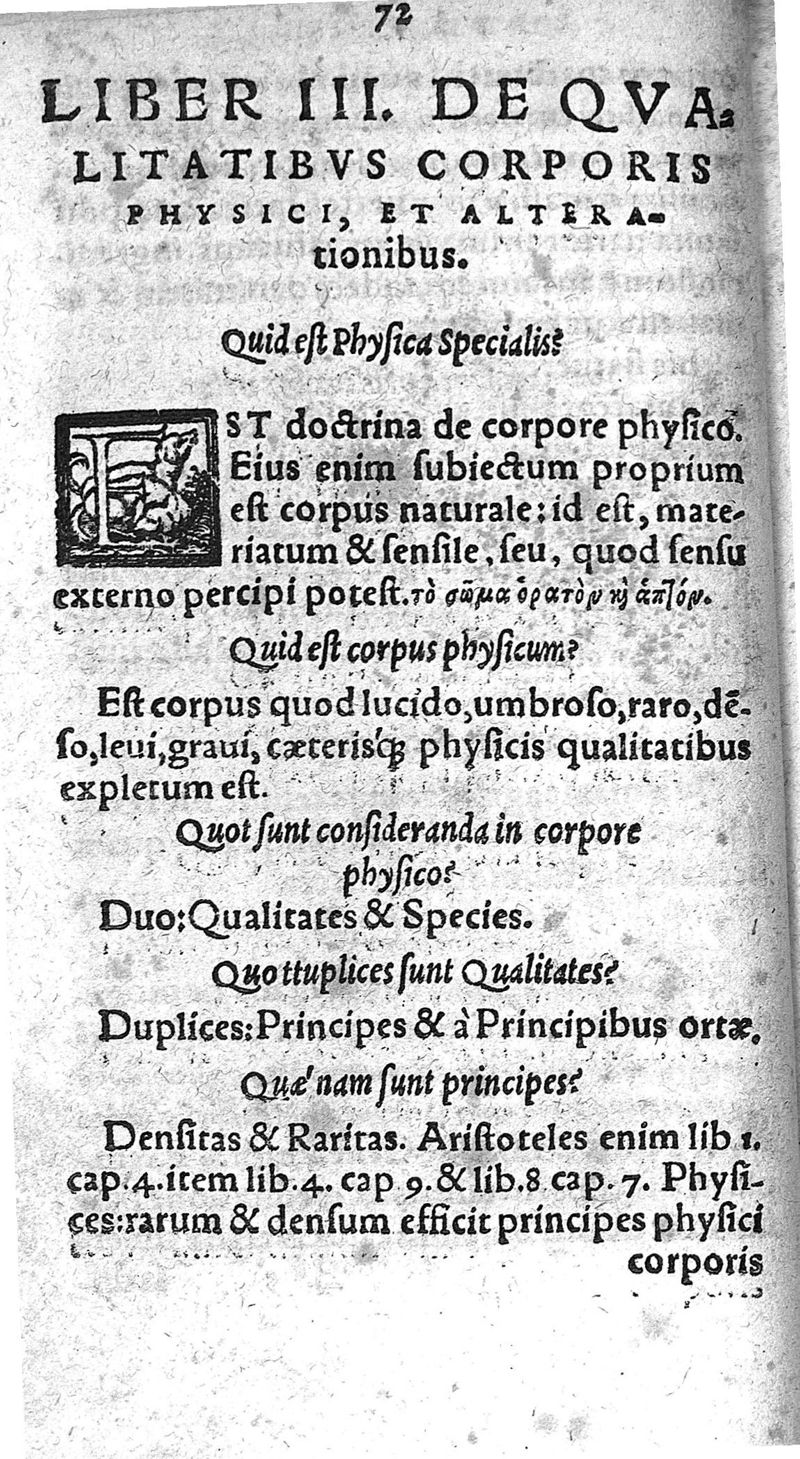 72
LIBER III. DE QVA-
LITATIBVS CORPORIS
PHYSICI, ET ALTERA-
tionibus.
Quid eſt Phyſica Specialis?
EST doctrina de corpore phyſico.
Eius enim ſubiectum proprium
eſt corpus naturale: id eſt, mate-
riatum & ſenſile, ſeu, quod ſenſu
externo percipi poteſt. τὸ σῶμα ὁρατὸν ϗ̀ ἁπτόν.
Quid eſt corpus phyſicum?
Eſt corpus quod lucido, umbroſo, raro, dẽ-
ſo, leui, graui, cæteriśq; phyſicis qualitatibus
expletum eſt.
Quot ſunt conſideranda in corpore
phyſico?
Duo: Qualitates & Species.
Quottuplices ſunt Qualitates?
Duplices: Principes & à Principibus ortæ.
Quæ'nam ſunt principes?
Denſitas & Raritas. Ariſtoteles enim lib 1.
cap. 4. item lib. 4. cap 9. & lib. 8 cap. 7. Phyſi-
ces: rarum & denſum efficit principes phyſici
corporis